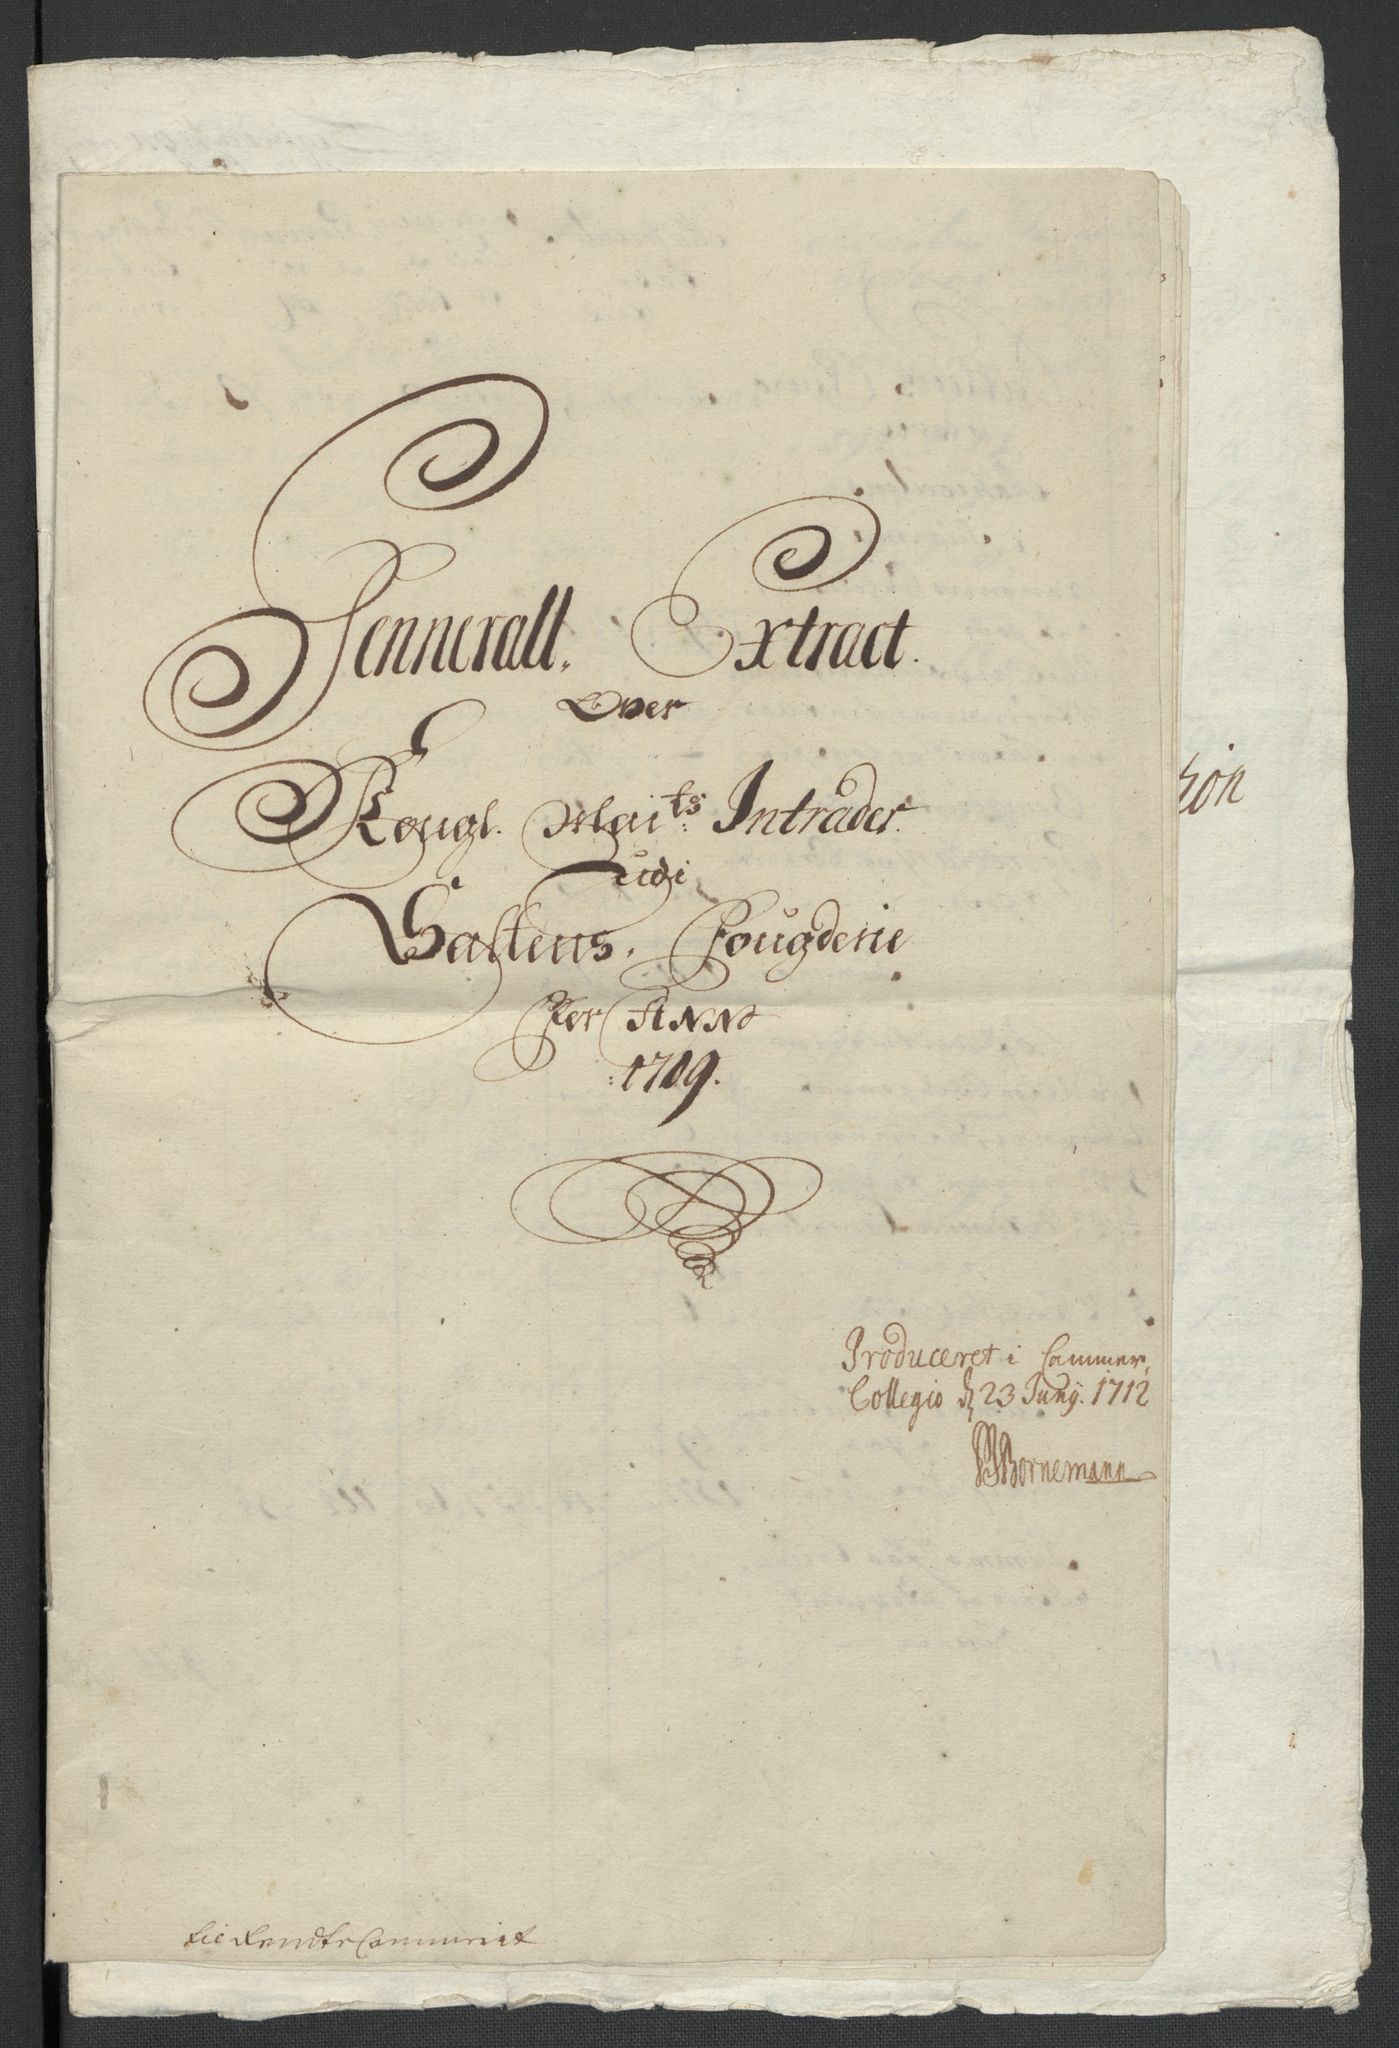 Gennerall. Extract.
Over
Kongl. Maits: Intrader.
Udi
Saltens. Fougderie
Per Anno
:1709.
Produceret i Cammer,
Collegio d 23 Junij. 1712
Bornemann
til RendteCammeriet